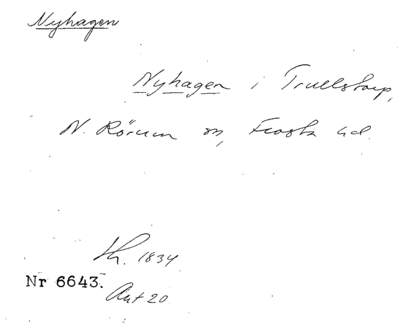 Nyhagen
Nyhagen i Trullstorp,
N. Rörum sn, Frosta hd.
Kh. 1834
Nr 6643.
Akt 20